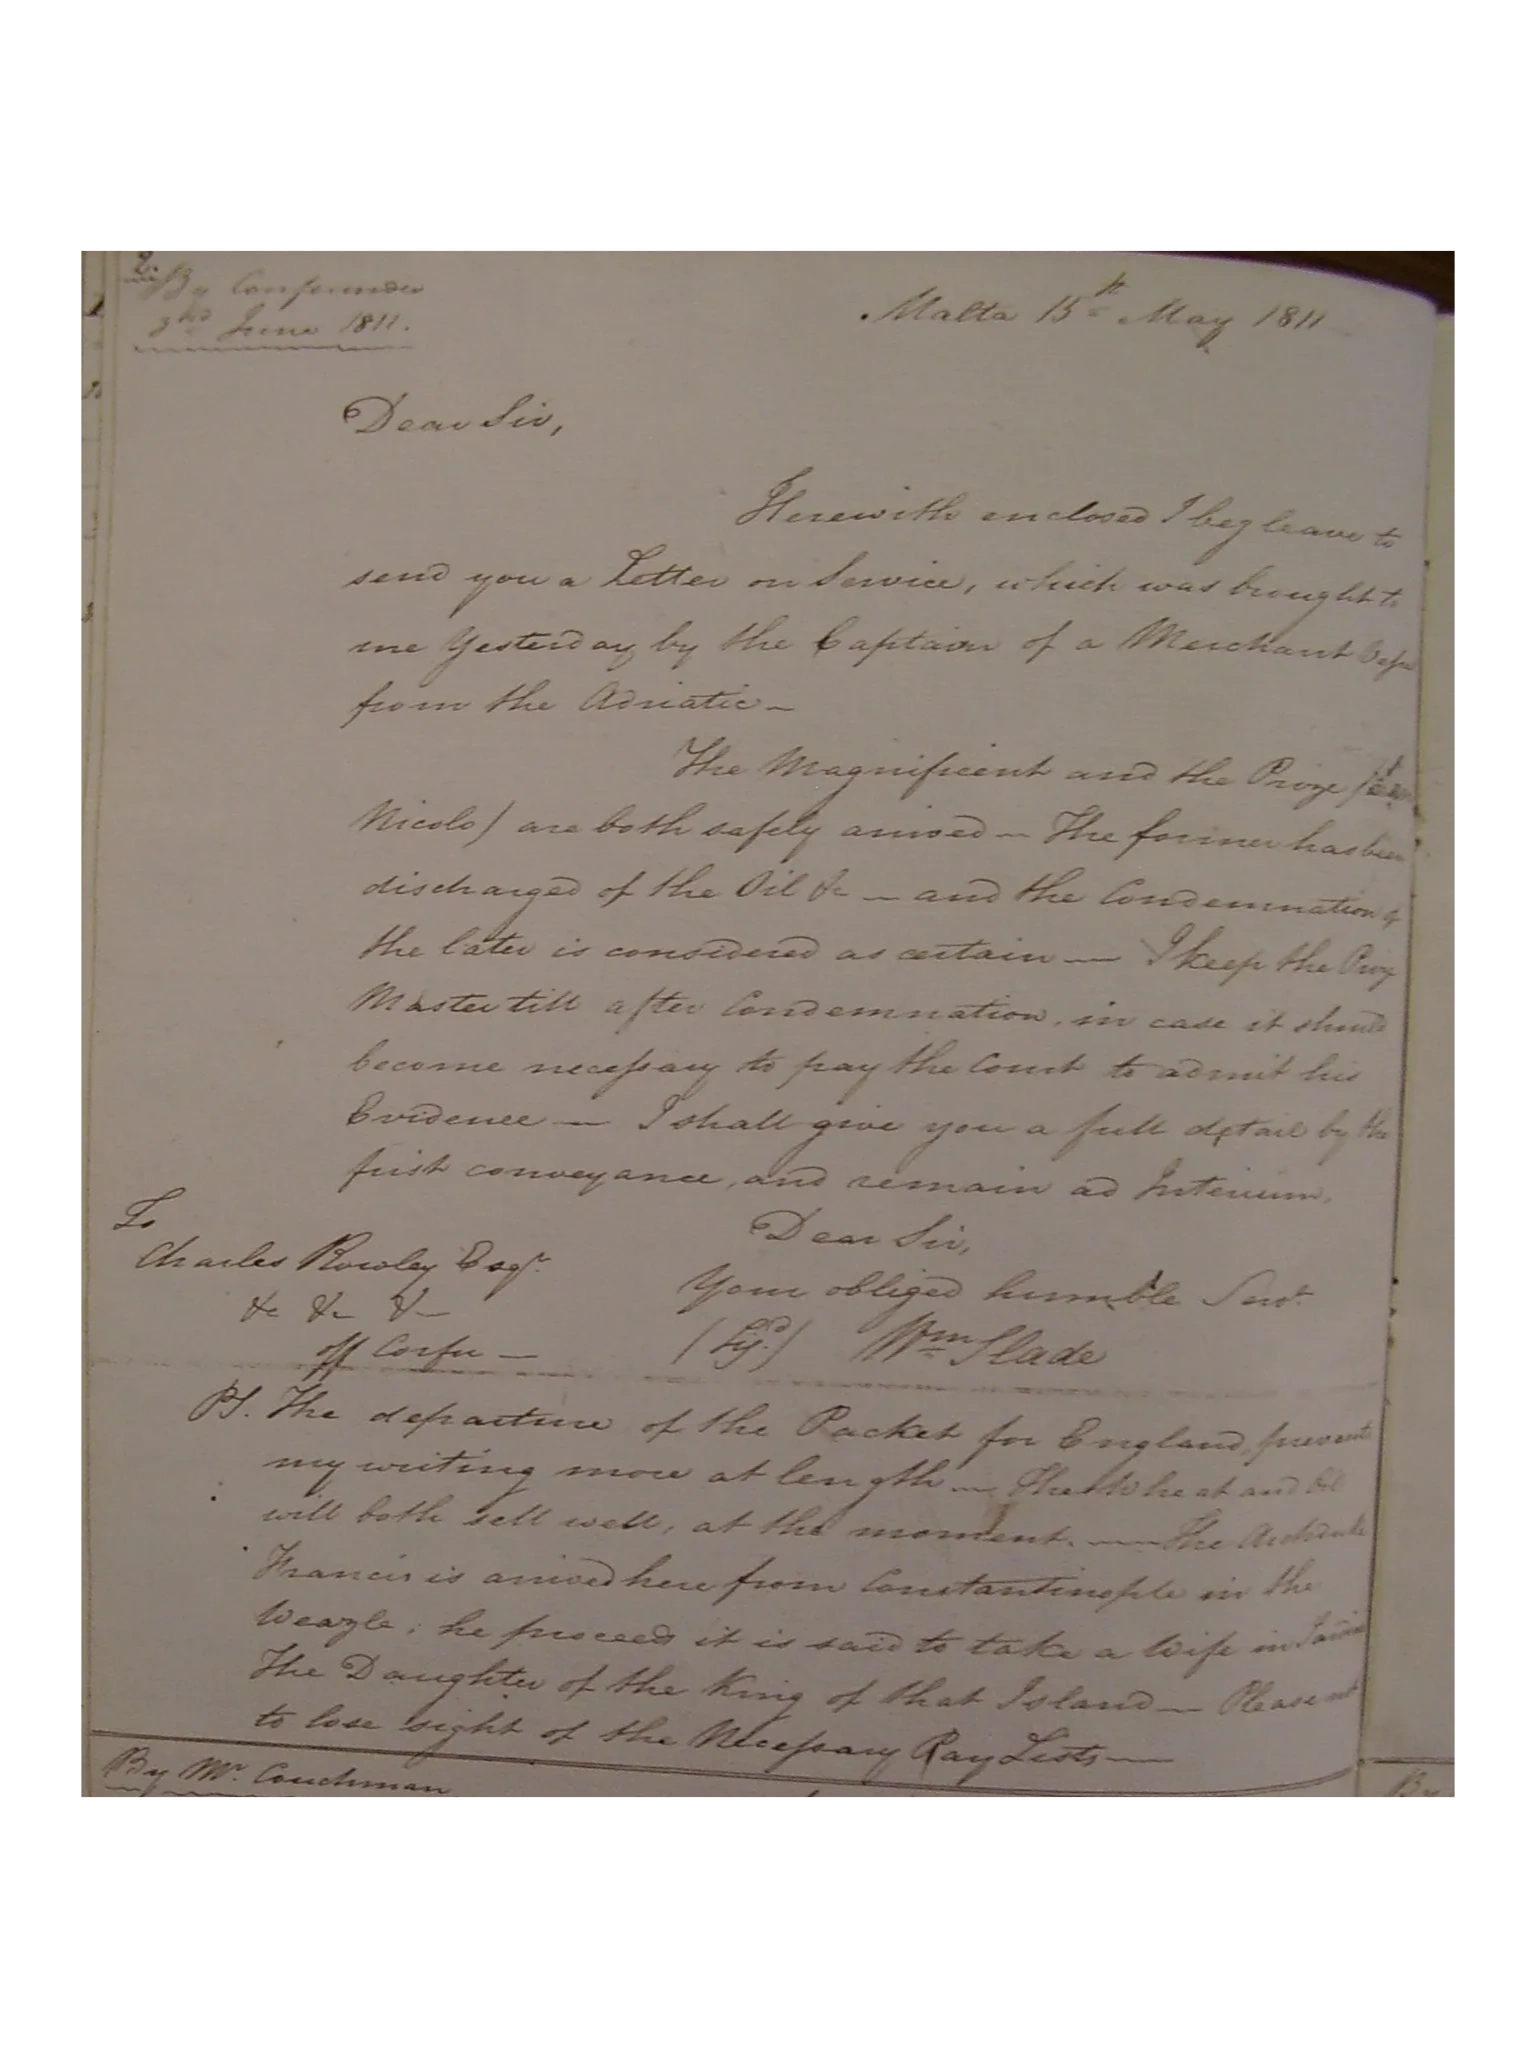 2.
By Confounder
3rd June 1811.
Malta 15th May 1811
Dear Sir,
Herewith enclosed I beg leave to
send you a Letter on Service, which was brought to
me Yesterday by the Captain of a Merchant Vessel
from the Adriatic—
The Magnificent and the Prize /
Nicolo/ are both safely arrived — The former has been
discharged of the Oil &c — and the Condemnation of
the later is considered as certain — I keep the Prize
Master till after Condemnation, in case it should
become necessary to pray the Court to admit his
Evidence — I shall give you a full detail by the
first conveyance, and remain ad Interium,
Dear Sir,
Your obliged humble Servt.
(Sigd.) Wm Slade
To
Charles Rowley Esqr.
&c &c &c
off Corfu —
PS. The departure of the Packet for England, prevents
my writing more at length — The Wheat and Oil
will both sell well, at the moment. — The Archduke
Francis is arrived here from Constantinople in the
Weazle; he proceeds it is said to take a Wife in Sardinia
The Daughter of the King of that Island — Please not
to lose sight of the Necessary Pay Lists —
By Mr. Couchman
By